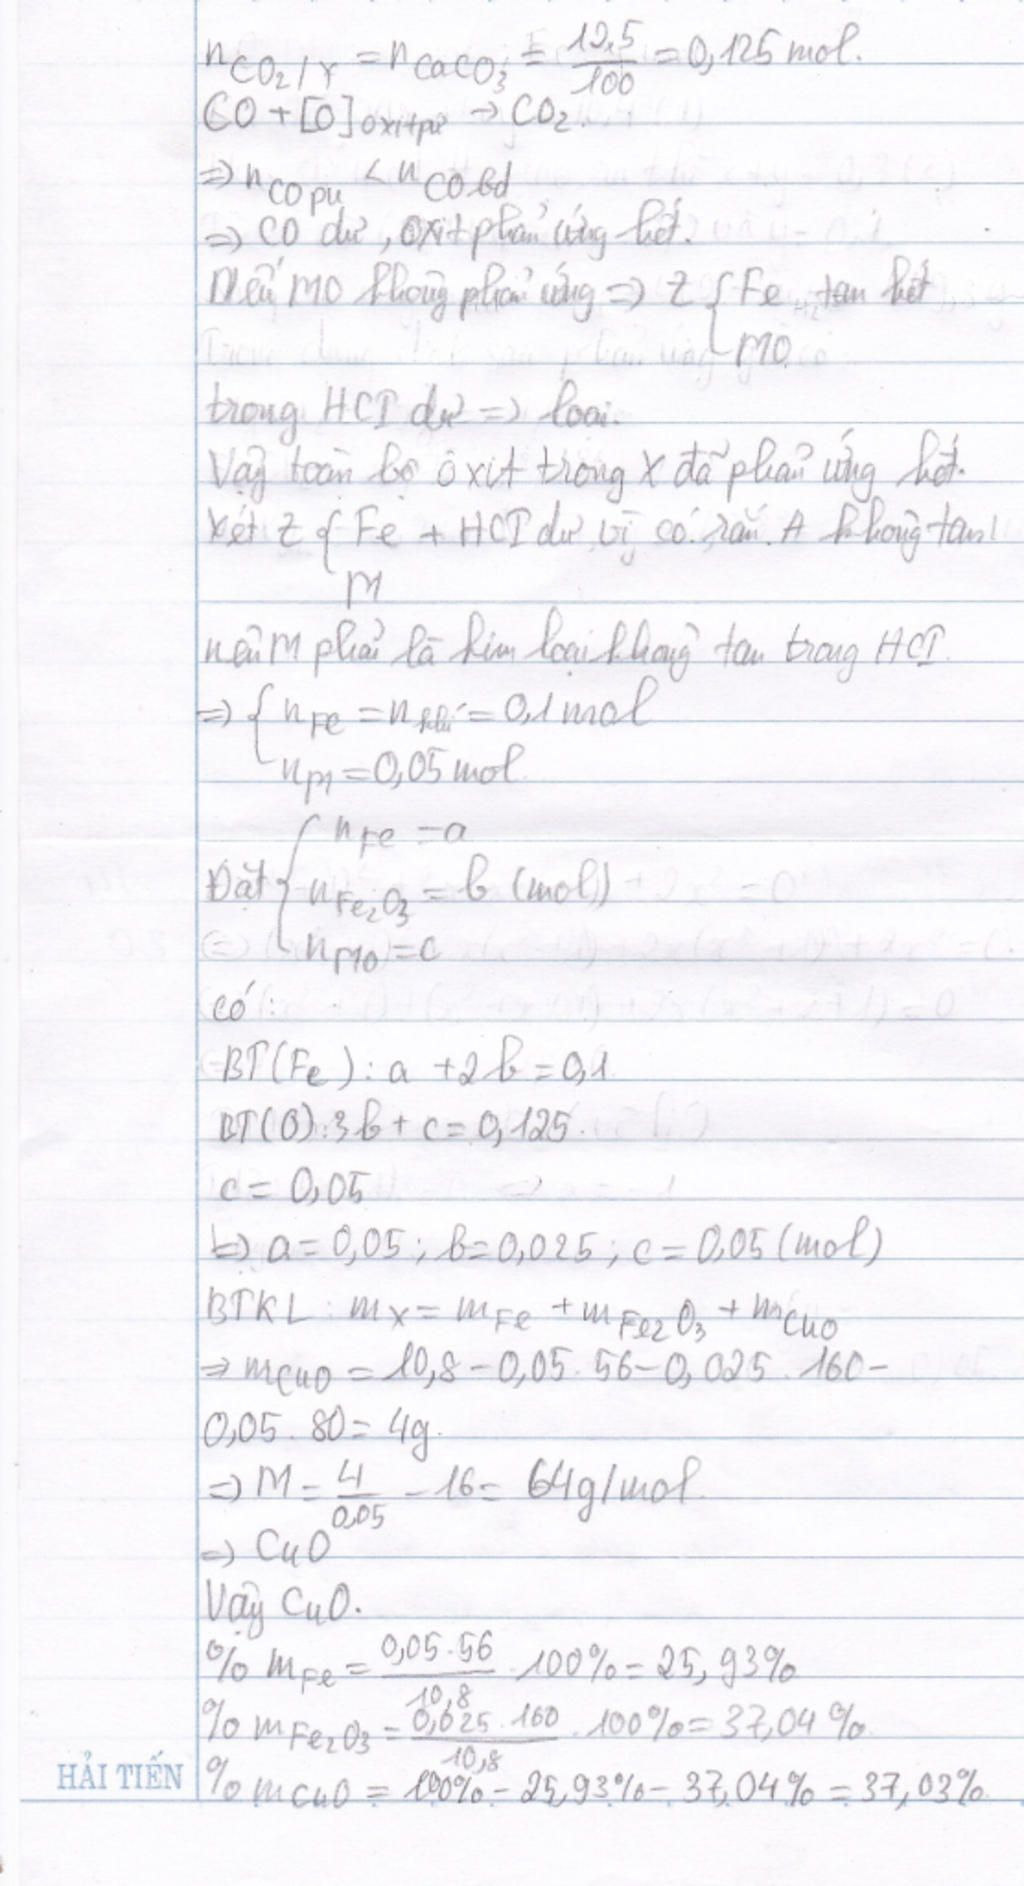 n CO2/Y = n CaCO3 = 12,5/100 = 0,125 mol.
CO + [O] oxit pư → CO2
=> n CO pu < n CO bd
=> CO dư, oxit phản ứng hết.
Nếu MO không phản ứng => Z { Fe tan hết
MO
trong HCl dư => loại.
Vậy toàn bộ oxit trong X đã phản ứng hết.
Xét Z { Fe + HCl dư vì có rắn A không tan
M
nên M phải là kim loại không tan trong HCl.
=> { n Fe = n khí = 0,1 mol
n M = 0,05 mol
{ n Fe = a
Đặt n Fe2O3 = b (mol)
n MO = c
có:
BT(Fe): a + 2b = 0,1
BT(O): 3b + c = 0,125
c = 0,05
=> a = 0,05; b = 0,025; c = 0,05 (mol)
BTKL: m X = m Fe + m Fe2O3 + m CuO
=> m CuO = 10,8 - 0,05. 56 - 0,025. 160 -
0,05. 80 = 4g.
=> M = 4/0,05 - 16 = 64g/mol.
=> CuO
Vậy CuO.
% m Fe = 0,05.56/10,8 . 100% = 25,93%
% m Fe2O3 = 0,025.160/10,8 . 100% = 37,04%
HẢI TIẾN % m CuO = 100% - 25,93% - 37,04% = 37,03%